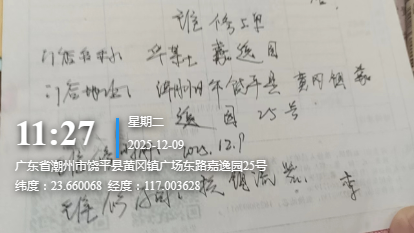 维修工单
门店名称 华莱士 嘉逸园
门店地址: 潮州市饶平县 黄冈镇嘉
逸园25号
11:27
星期二
2025-12-09
2025.12.9
广东省潮州市饶平县黄冈镇广场东路嘉逸园25号
纬度:23.660068 经度:117.003628
维修